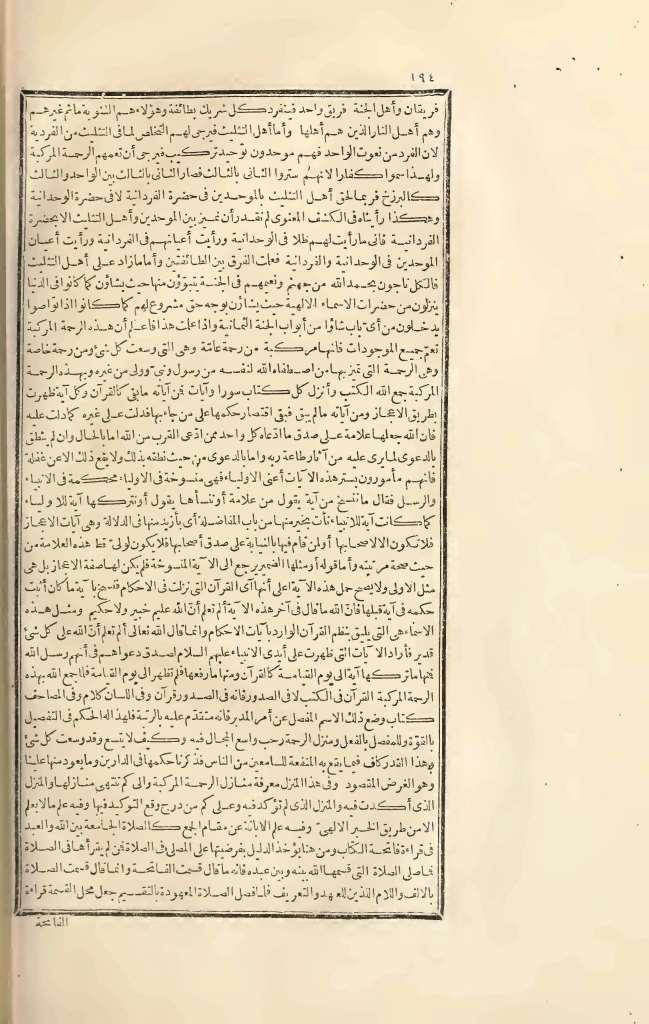 ١٩٤
فريقان وأهل الجنة فريق واحد فينفرد كل شريك بطائفة وهؤلاء هم الثنوية ما ثم غيرهم
وهم أهل النار الذين هم أهلها وأما أهل التثليث فيرجى لهم التخلص لما فى التثليث من الفردية
لان الفرد من نعوت الواحد فهم موحدون توحيد تركيب فيرجى أن تعمهم الرحمة المركبة
ولهذا سموا كفارا لانهم ستروا الثانى بالثالث فصار الثانى بالثالث بين الواحد والثالث
كالبرزخ فربما لحق أهل التثليث بالموحدين فى حضرة الفردانية لا فى حضرة الوحدانية
وهكذا رأيناه فى الكشف المعنوى لم نقدر أن نميز بين الموحدين وأهل التثليث الا بحضرة
الفردانية فانى ما رأيت لهم ظلا فى الوحدانية ورأيت أعيانهم فى الفردانية ورأيت أعيان
الموحدين فى الوحدانية والفردانية فعلمت الفرق بين الطائفتين وأما ما زاد على أهل التثليث
فالكل ناجون بحمد الله من جهنم ونعيمهم فى الجنة يتبوّؤن منها حيث يشاؤن كما كانوا فى الدنيا
ينزلون من حضرات الاسماء الالهية حيث يشاؤن بوجه حق مشروع لهم كما كانوا اذا توضوا
يدخلون من أى باب شاؤا من أبواب الجنة الثمانية واذا علمت هذا فاعلم أن هذه الرحمة المركبة
تعم جميع الموجودات فانها مركبة من رحمة عامّة وهى التى وسعت كل شئ ومن رحمة خاصة
وهى الرحمة التى تميز بها من اصطفاه الله لنفسه من رسول ونبىّ وولى من غيره وبهذه الرحمة
المركبة جمع الله الكتب وأنزل كل كتاب سورا وآيات فمن آياته ما بقى كالقرآن وكل آية ظهرت
بطريق الاعجاز ومن آياته ما لم يبق فبقى اقتصار حكمها على من جاء بها فدلت على غيره كما دلت عليه
فان الله جعلها علامة على صدق ما ادّعاه كل واحد ممن ادّعى القرب من الله اما بالحال وان لم ينطق
بالدعوى لما يرى عليه من آثار طاعة ربه واما بالدعوى من حيث نطقه بذلك ولا يقع ذلك الا عن غفلة
فانهم مأمورون بستر هذه الآيات أعنى الاولياء فهى منسوخة فى الاولياء محكمة فى الانبياء
والرسل فقال ما ننسخ من آية يقول من علامة أو ننسأها يقول أو نتركها آية للاولياء
كما كانت آية للانبياء نأت بخير منها من باب المفاضلة أى بأزيد منها فى الدلالة وهى آيات الاعجاز
فلا تكون الا لاصحابها أو لمن قام فيها بالنيابة على صدق أصحابها فلا يكون لولىّ قط هذه العلامة من
حيث صحة مرتبته وأما قوله أو مثلها الضمير يرجع الى الآية المنسوخة فلم يكن لها صفة الاعجاز بل هى
مثل الاولى ولا يصح حمل هذه الآية على أنها آى القرآن التى نزلت فى الاحكام فنسخ بآية ما كان أثبت
حكمه فى آية قبلها فانّ الله ما قال فى آخر هذه الآية ألم تعلم أنّ الله عليم خبير ولا حكيم ومثل هذه
الاسماء هى التى يليق بنظم القرآن الوارد بآيات الاحكام وانما قال الله تعالى ألم تعلم أنّ الله على كل شئ
قدير فأراد الآيات التى ظهرت على أيدى الانبياء عليهم السلام لصدق دعواهم فى أنهم رسل الله
فمنها ما تركها آية الى يوم القيامة كالقرآن ومنها ما رفعها فلم تظهر الى يوم القيامة فلما جمع الله بهذه
الرحمة المركبة القرآن فى الكتب لا فى الصدور فانه فى الصدور قرآن وفى اللسان كلام وفى المصاحف
كتاب وضع ذلك الاسم المفصل عن أمر المدبر فانه متقدّم عليه بالرتبة فلهذا له الحكم فى التفصيل
بالقوّة وللمفصل بالفعل ومنزل الرحمة رحب واسع المجال فيه وكيف لا يتسع وقد وسعت كل شئ
وهذا القدر كاف فيما يقع به المنفعة للسامعين من الناس فذكرنا حكمها فى الدارين وما يعود منها علينا
وهو الغرض المقصود وفى هذا المنزل معرفة منازل الرحمة المركبة والى كم تنتهى منازلها والمنزل
الذى أكدت فيه والمنزل الذى لم تؤكد فيه وعلى كم من درج وقع التوكيد فيها وفيه علم ما لا يعلم
الا من طريق الخبر الالهىّ وفيه علم الابانة عن مقام الجمع كالصلاة الجامعة بين الله والعبد
فى قراءة فاتحة الكتاب ومن هنا يؤخذ الدليل بفرضيتها على المصلى فى الصلاة فمن لم يقرأها فى الصلاة
فما صلى الصلاة التى قسمها الله بينه وبين عبده فانه ما قال قسمت الفاتحة وانما قال قسمت الصلاة
بالالف واللام اللذين للعهد والتعريف فلما فصل الصلاة المعهودة بالتقسيم جعل محل القسمة قراءة
الفاتحة